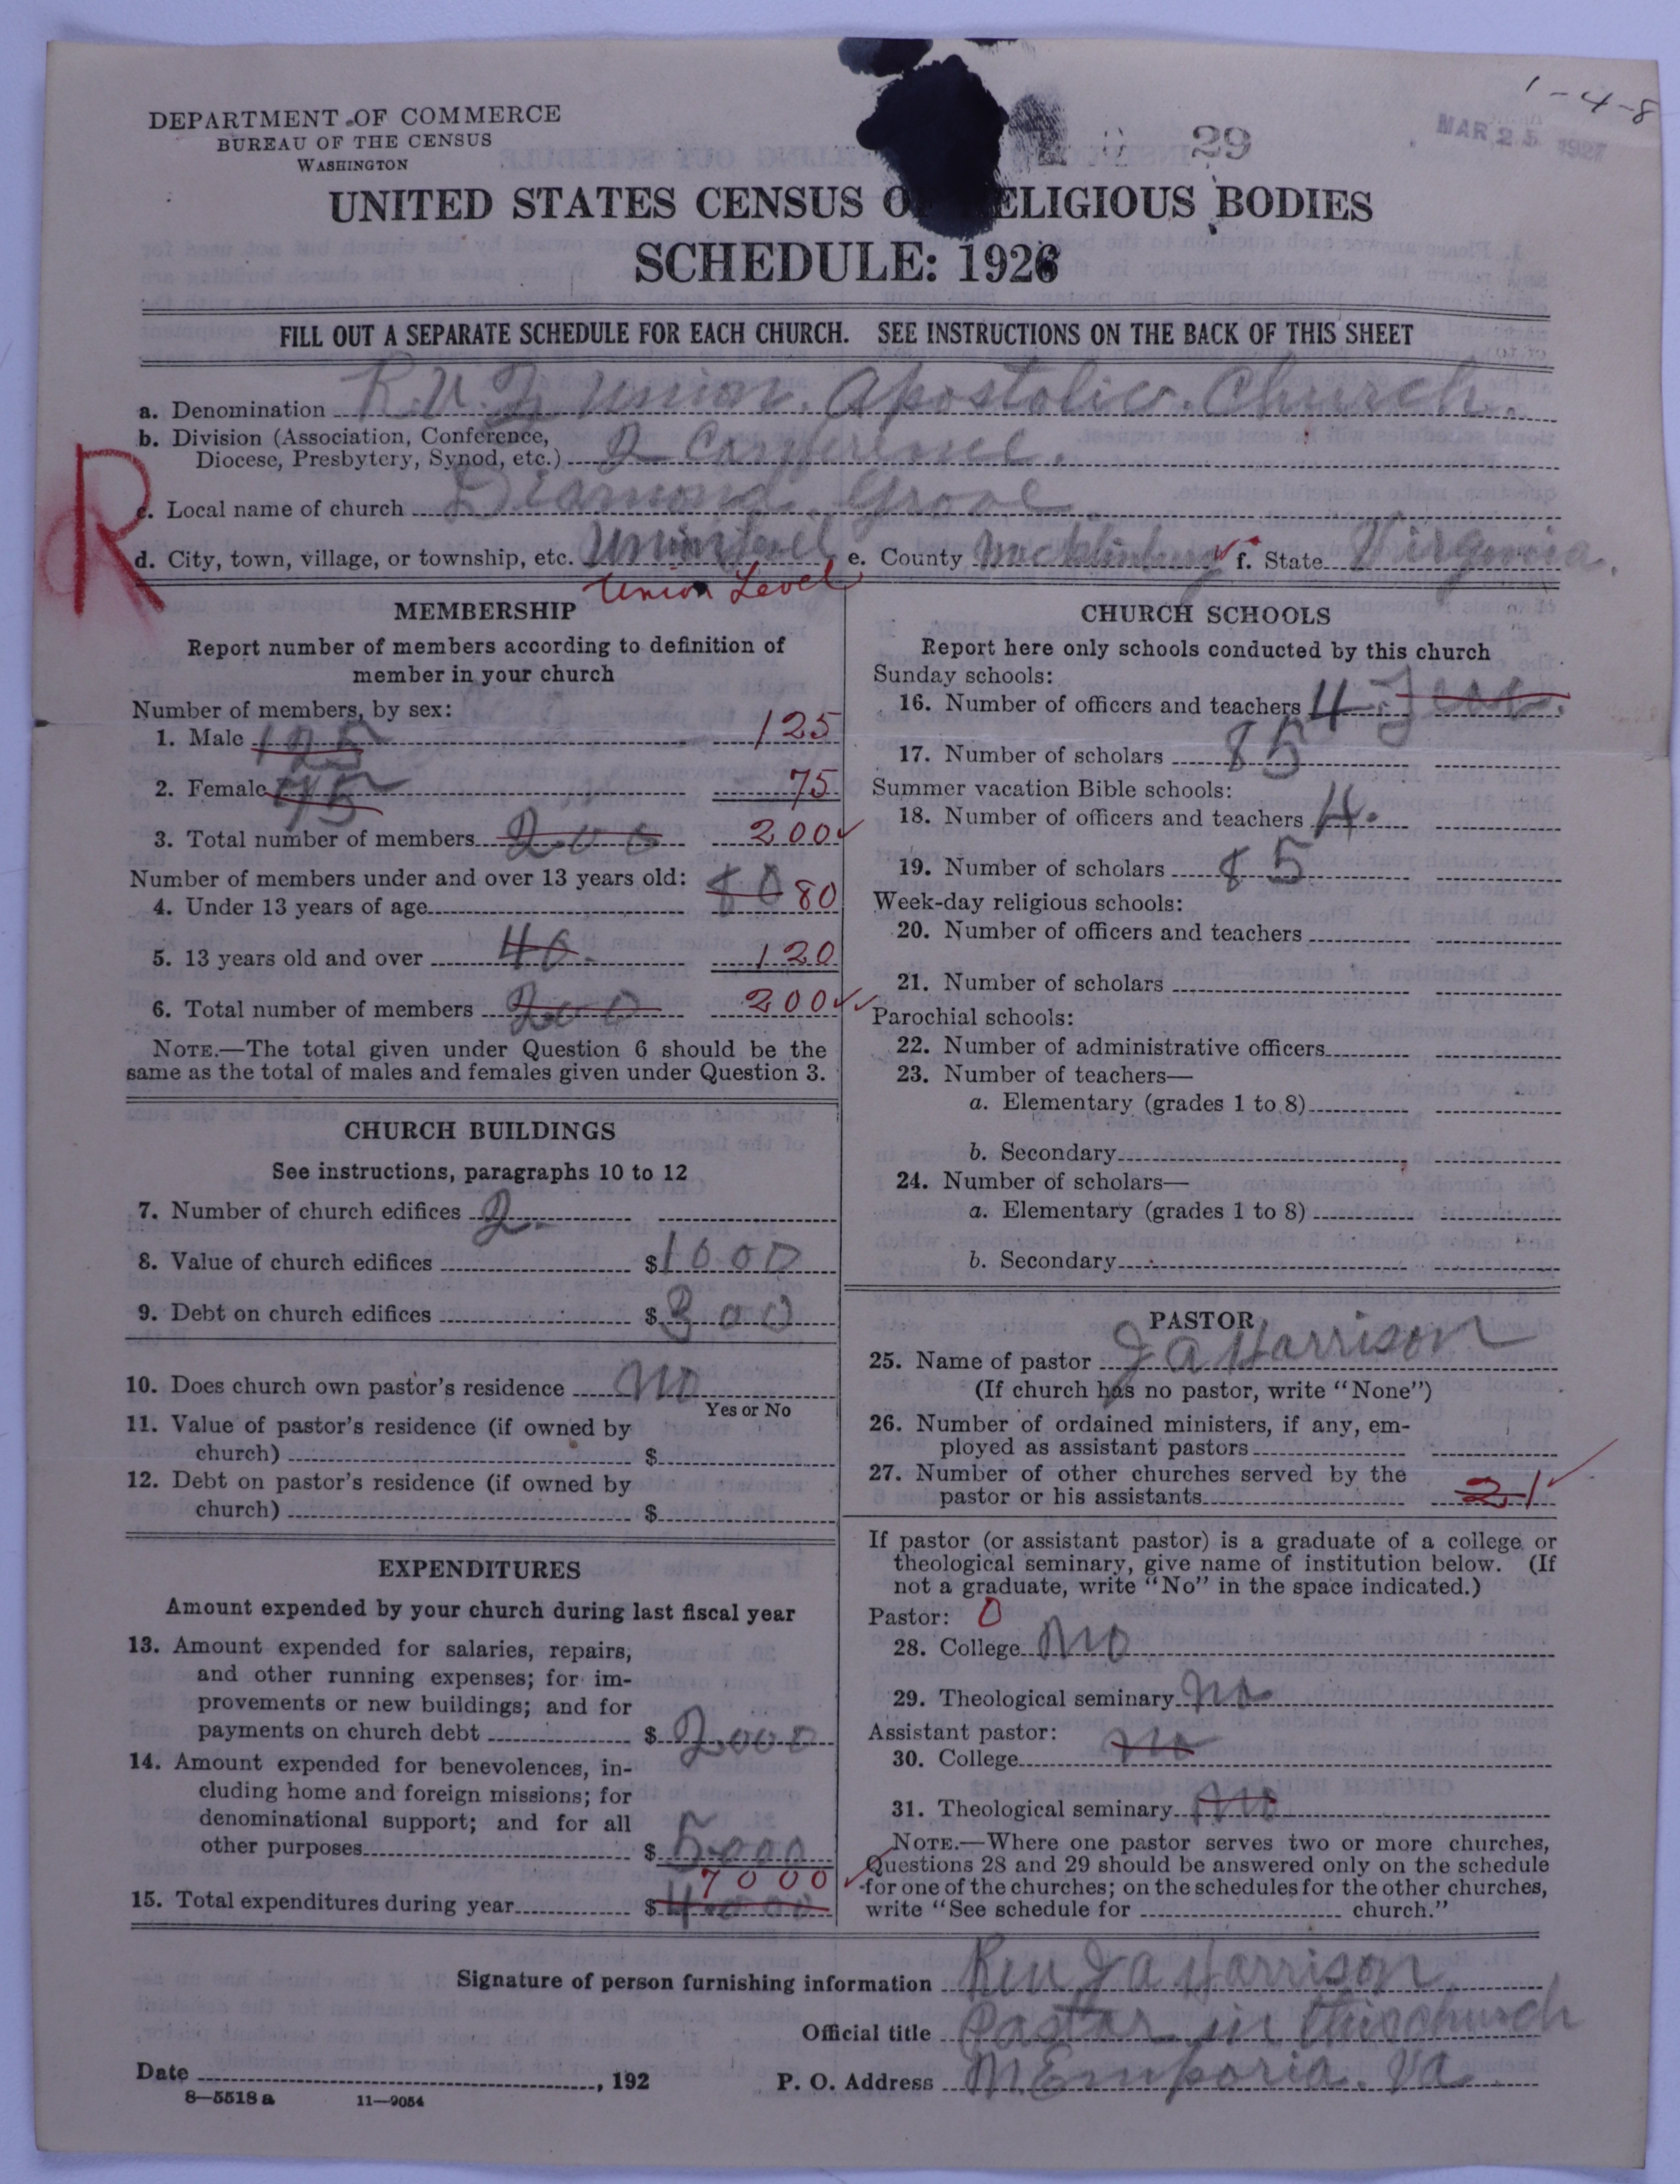 1-4-8
DEPARTMENT OF COMMERCE
BUREAU OF THE CENSUS
WASHINGTON
29
MAR 25 1927
UNITED STATES CENSUS OF RELIGIOUS BODIES
SCHEDULE: 1926
FILL OUT A SEPARATE SCHEDULE FOR EACH CHURCH. SEE INSTRUCTIONS ON THE BACK OF THIS SHEET
a. Denomination R. U. Z Union. Apostolic. Church.
b. Division (Association, Conference,
Diocese, Presbytery, Synod, etc.) 2 Conference.
R
c. Local name of church Diamond. Grove
d. City, town, village, or township, etc. Unionlevel e. County Mecklinburg f. State Virginia.
Union Level
MEMBERSHIP
Report number of members according to definition of
member in your church
Number of members, by sex:
1. Male 125 125
2. Female 75 75
3. Total number of members 200 200
Number of members under and over 13 years old:
4. Under 13 years of age 80 80
5. 13 years old and over 40. 120
6. Total number of members 200 200
NOTE.—The total given under Question 6 should be the
same as the total of males and females given under Question 3.
CHURCH BUILDINGS
See instructions, paragraphs 10 to 12
7. Number of church edifices 2
8. Value of church edifices $1000
9. Debt on church edifices $300
10. Does church own pastor's residence no
Yes or No
11. Value of pastor's residence (if owned by
church) $
12. Debt on pastor's residence (if owned by
church) $
EXPENDITURES
Amount expended by your church during last fiscal year
13. Amount expended for salaries, repairs,
and other running expenses; for im-
provements or new buildings; and for
payments on church debt $2000
14. Amount expended for benevolences, in-
cluding home and foreign missions; for
denominational support; and for all
other purposes $5000
7000
15. Total expenditures during year $4000
CHURCH SCHOOLS
Report here only schools conducted by this church
Sunday schools:
16. Number of officers and teachers 4
17. Number of scholars 85
Summer vacation Bible schools:
18. Number of officers and teachers 4.
19. Number of scholars 85
Week-day religious schools:
20. Number of officers and teachers
21. Number of scholars
Parochial schools:
22. Number of administrative officers
23. Number of teachers—
a. Elementary (grades 1 to 8)
b. Secondary
24. Number of scholars—
a. Elementary (grades 1 to 8)
b. Secondary
PASTOR
25. Name of pastor J A Harrison
(If church has no pastor, write "None")
26. Number of ordained ministers, if any, em-
ployed as assistant pastors
27. Number of other churches served by the
pastor or his assistants 2 1
If pastor (or assistant pastor) is a graduate of a college or
theological seminary, give name of institution below. (If
not a graduate, write "No" in the space indicated.)
Pastor: 0
28. College no
29. Theological seminary no
Assistant pastor:
30. College no
31. Theological seminary no
NOTE.—Where one pastor serves two or more churches,
Questions 28 and 29 should be answered only on the schedule
for one of the churches; on the schedules for the other churches,
write "See schedule for church."
Signature of person furnishing information Rev J A Harrison
Official title Pastor in this church
Date , 192 P. O. Address Emporia. Va
8—5518 a 11—9054